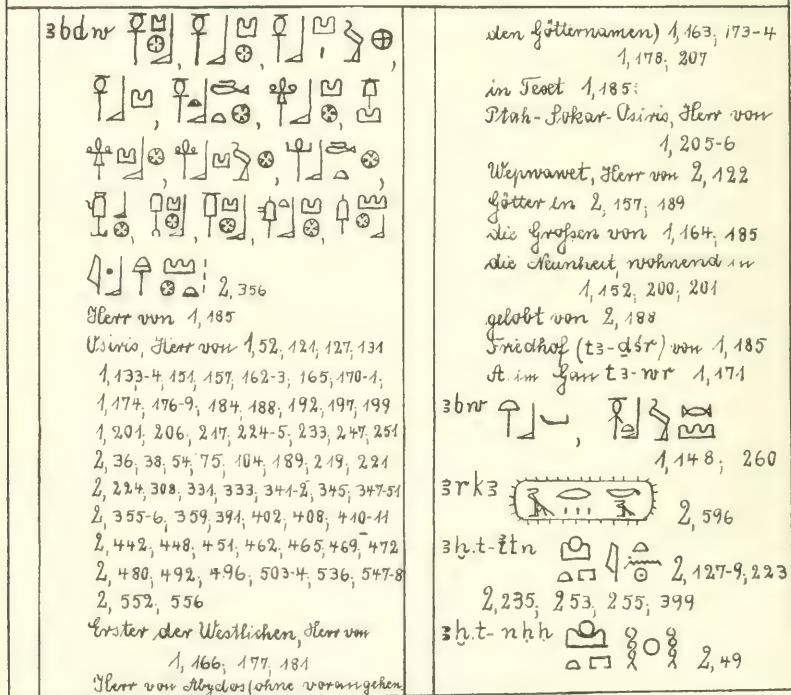 ꜣbdw
2, 356
Herr von 1, 185
Osiris, Herr von 1, 52; 121; 127; 131
1, 133-4; 151; 157; 162-3; 165; 170-1;
1, 174; 176-9; 184; 188; 192; 197; 199
1, 201; 206; 217; 224-5; 233; 247; 251
2, 36; 38; 54; 75; 104; 189; 219; 221
2, 224; 308; 331; 333; 341-2; 345; 347-51
2, 355-6; 359; 391; 402; 408; 410-11
2, 442; 448; 451; 462; 465; 469; 472
2, 480; 492; 496; 503-4; 536; 547-8
2, 552; 556
Erster der Westlichen, Herr von
1, 166; 177; 181
Herr von Abydos (ohne vorangehen
den Götternamen) 1, 163; 173-4
1, 178; 207
in Teset 1, 185;
Ptah-Sokar-Osiris, Herr von
1, 205-6
Wepwawet, Herr von 2, 122
Götter in 2, 157; 189
die Großen von 1, 164; 185
die Neunheit, wohnend in
1, 152; 200; 201
gelobt von 2, 188
Friedhof (tꜣ-ḏśr) von 1, 185
A. im Gau tꜣ-wr 1, 171
ꜣbw
1, 148; 260
ꜣrkꜣ 2, 596
ꜣḫ.t-ỉtn 2, 127-9; 223
2, 235; 253; 255; 399
ꜣḫ.t-nḥḥ 2, 49